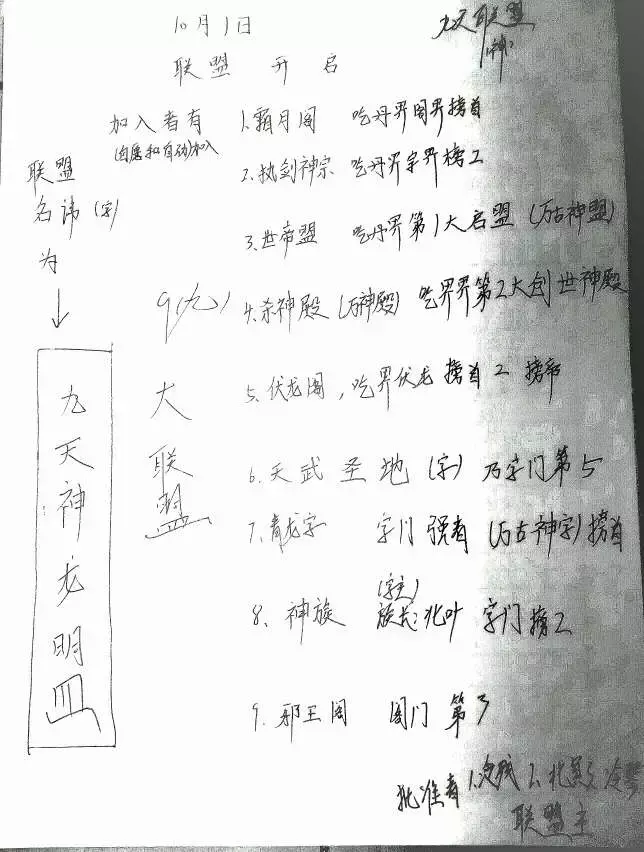 10月1日
九天联盟
(神)
联盟 开启
加入者有
(自愿和自动加入)
联盟
名讳(字)
为
九天神龙明皿
9(九)
大联盟
1.霜月阁 吃丹界阁界榜首
2.执剑神宗 吃丹界宗界榜2
3.世帝盟 吃丹界第1大启盟 (万古神盟)
4.杀神殿 (万神殿) 吃界界第2大创世神殿
5.伏龙阁,吃界伏龙榜首2 榜帝
6.天武圣地(字) 乃字门第5
7.青龙字 字门强者 (万古神字)榜首
(字主)
8.神族 族长:北叶 字门榜2
9.邪王阁 阁门第3
批准者 1. 2.北影
联盟主